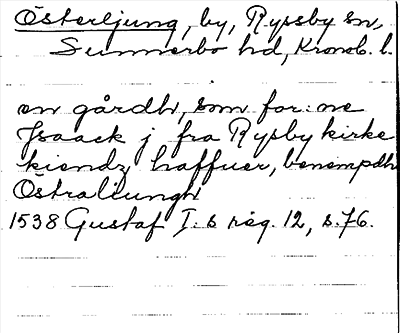 Österljung, by, Ryssby sn,
Sunnerbo hd, Kronob. l.
en gårdh, som for:ne
Isaack j fra Rysby kirke
kiendz haffuer, benempdh
Östraliungh
1538 Gustaf I:s reg. 12, s. 76.